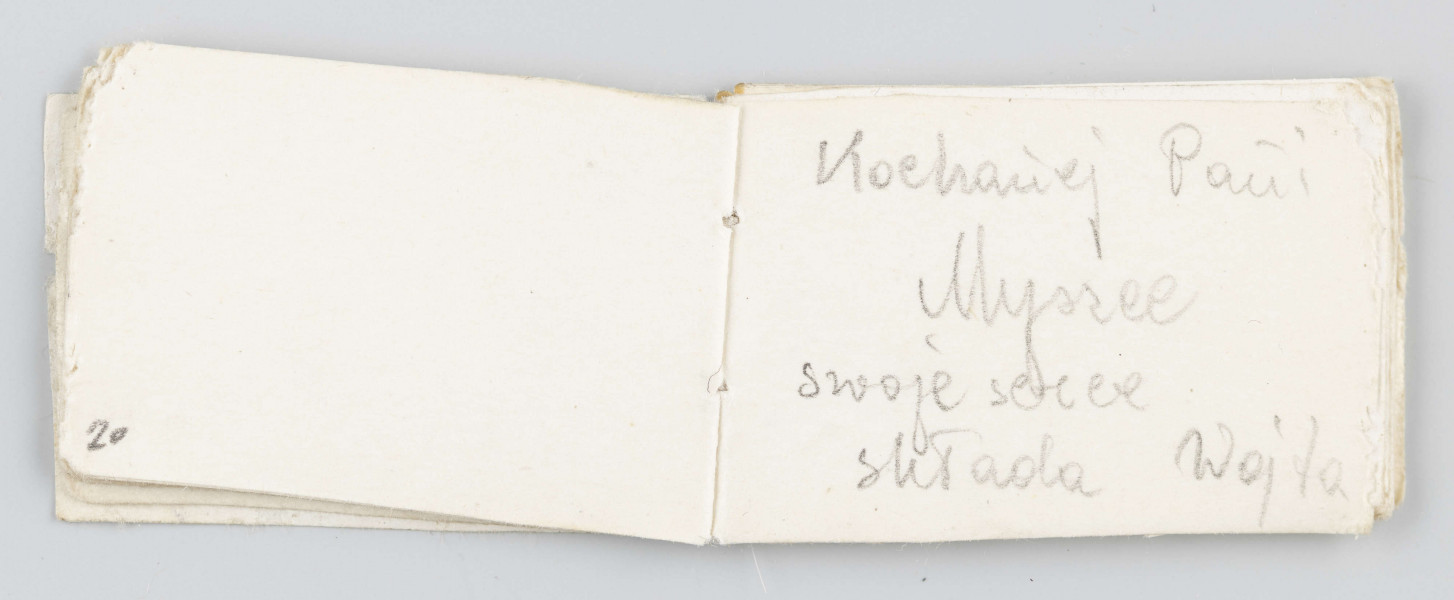 20
Kochanej Pani
Myszce
swoje serce
składa Wojta